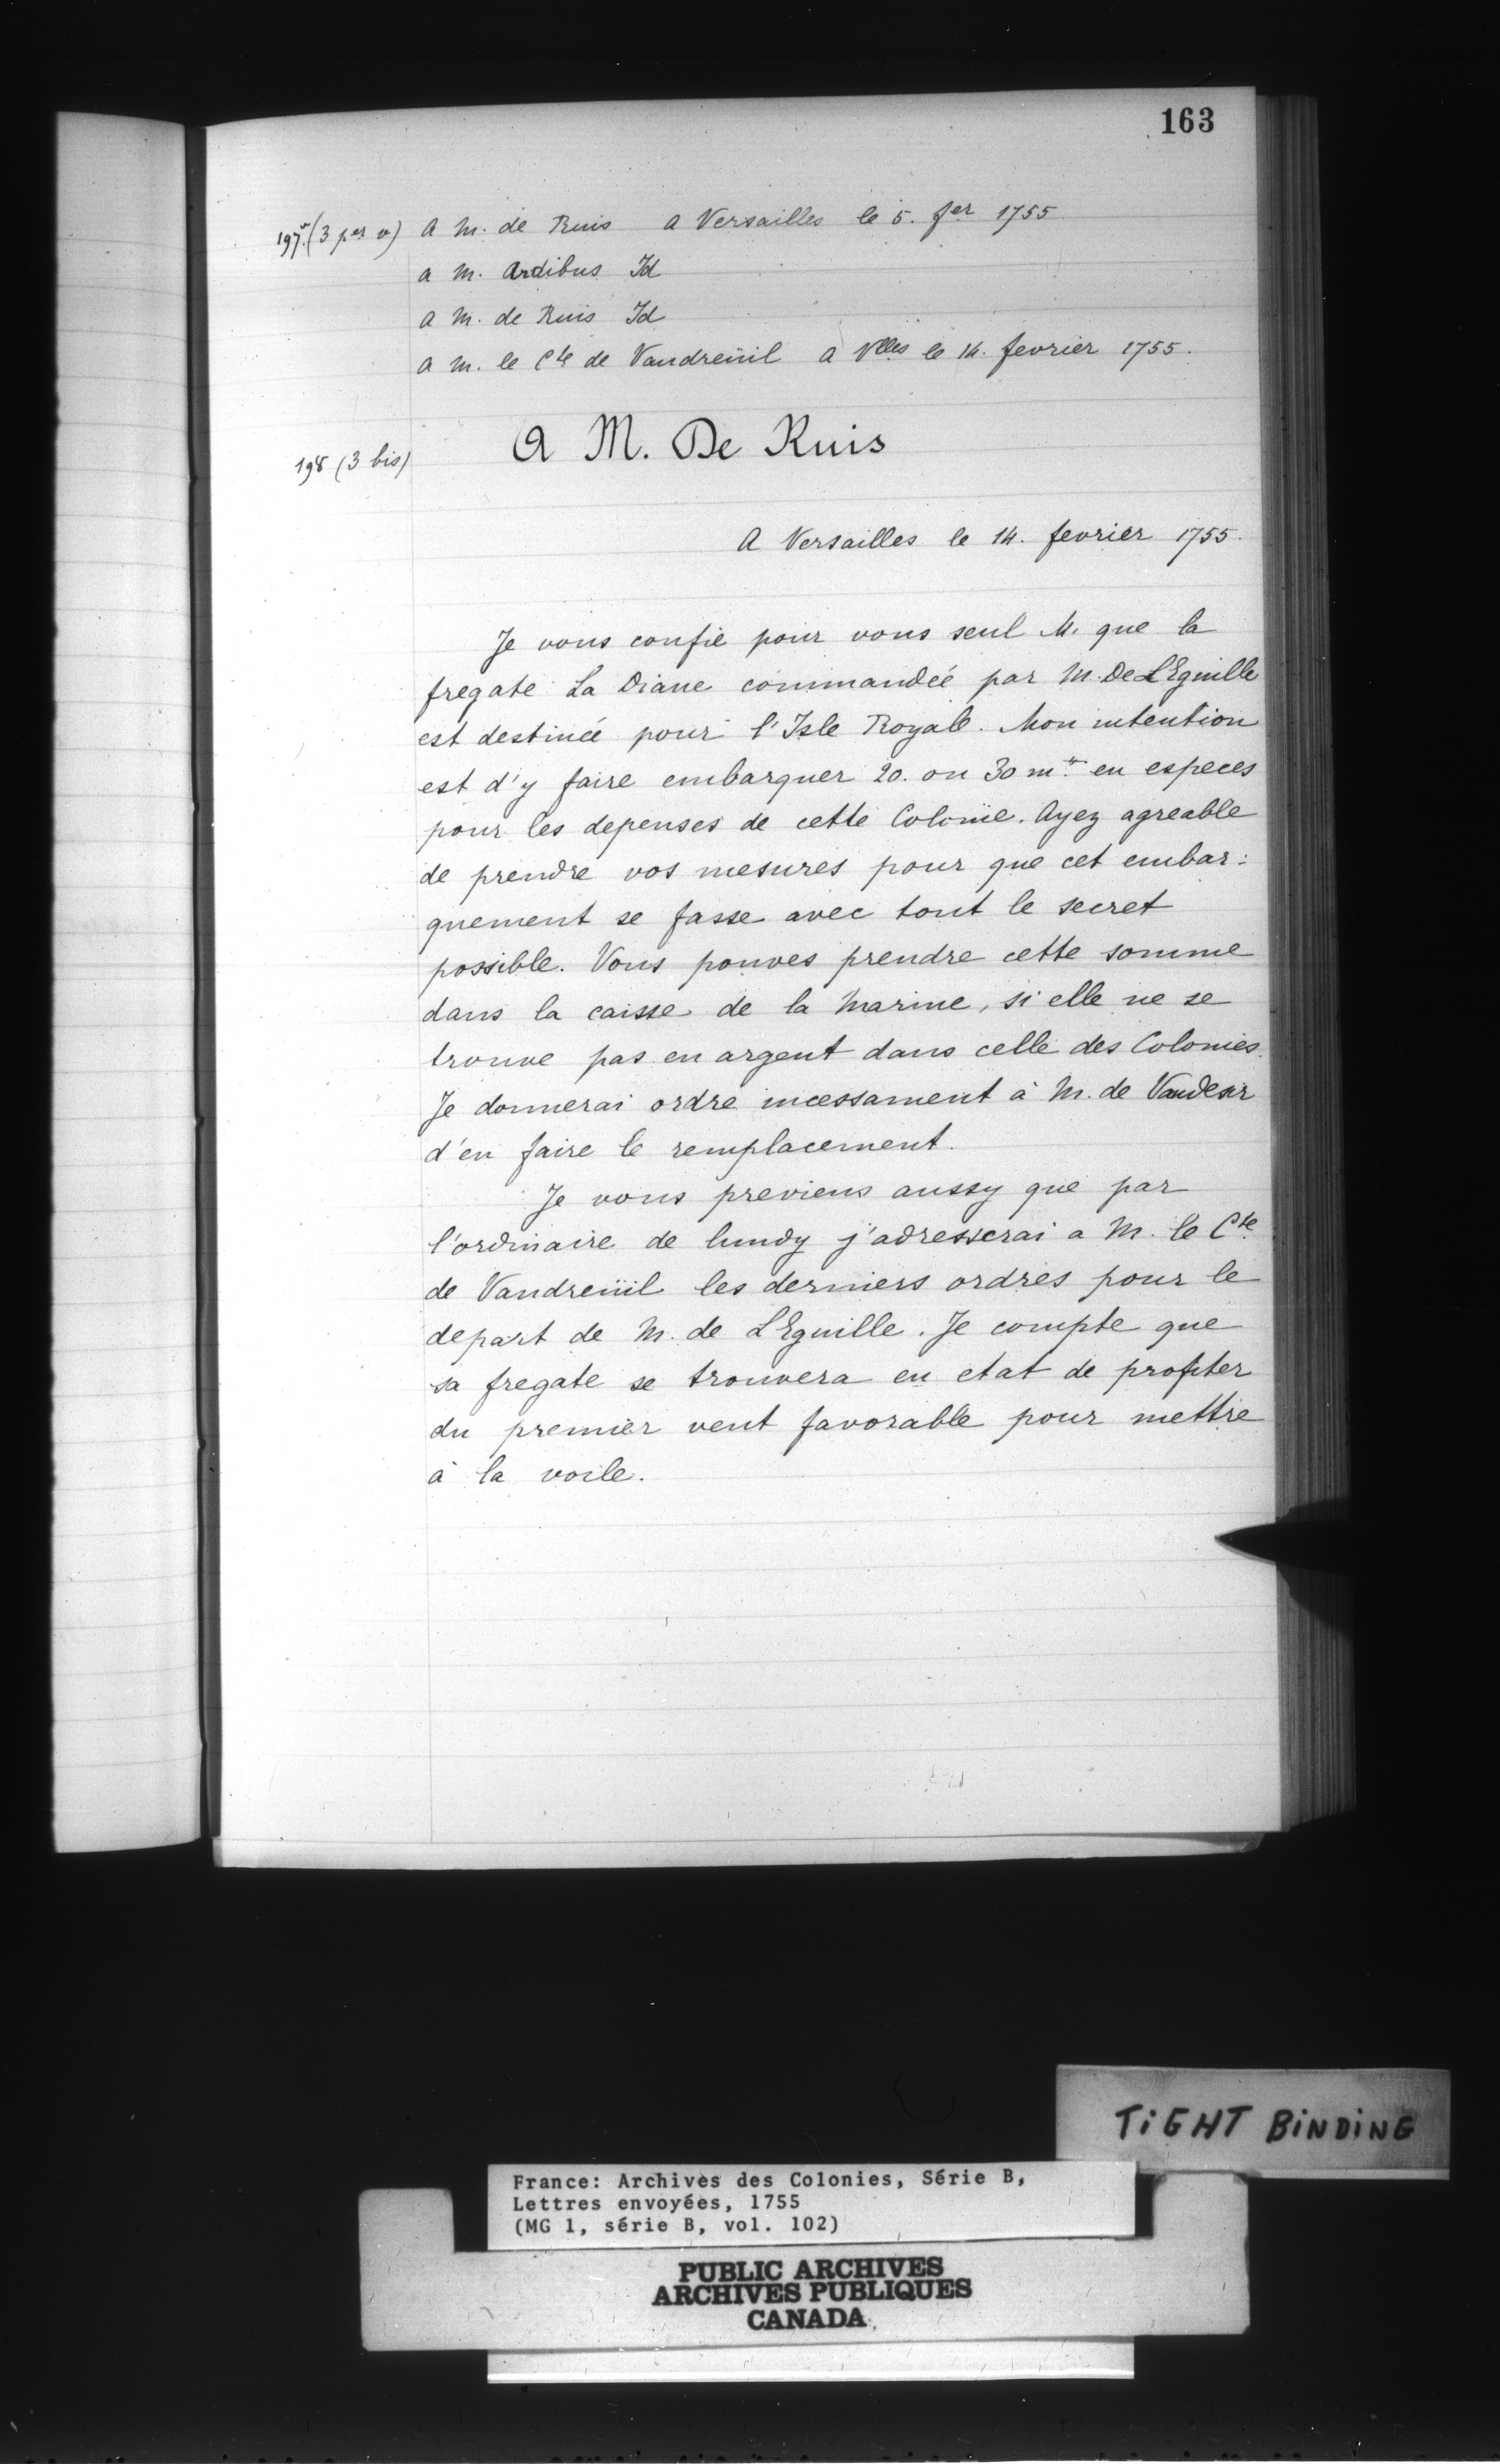 163
197.v (3 per v) A M. de Ruis A Versailles le 5. fer 1755
a M. Ardibus Id
A M. de Ruis Id
A M. le Cte de Vaudreüil A Vlles le 14. fevrier 1755.
198 (3 bis) A M. De Ruis
A Versailles le 14. fevrier 1755.
Je vous confie pour vous seul M. que la
fregate La Diane commandée par M. De L'Eguille
est destinée pour l'Isle Royale. Mon intention
est d'y faire embarquer 20. ou 30 m.tt en especes
pour les depenses de cette Colonie. Ayez agreable
de prendre vos mesures pour que cet embar:
quement se fasse avec tout le secret
possible. Vous pouves prendre cette somme
dans la caisse de la Marine, si elle ne se
trouve pas en argent dans celle des Colonies.
Je donnerai ordre incessament à M. de Vaudesir
d'en faire le remplacement.
Je vous previens aussy que par
l'ordinaire de lundy j'adresserai a M. le Cte
de Vaudreüil les derniers ordres pour le
depart de M. de L'Eguille. Je compte que
sa fregate se trouvera en etat de profiter
du premier vent favorable pour mettre
à la voile.
TiGHT BiNDiNG
France: Archives des Colonies, Série B,
Lettres envoyées, 1755
(MG 1, série B, vol. 102)
PUBLIC ARCHIVES
ARCHIVES PUBLIQUES
CANADA